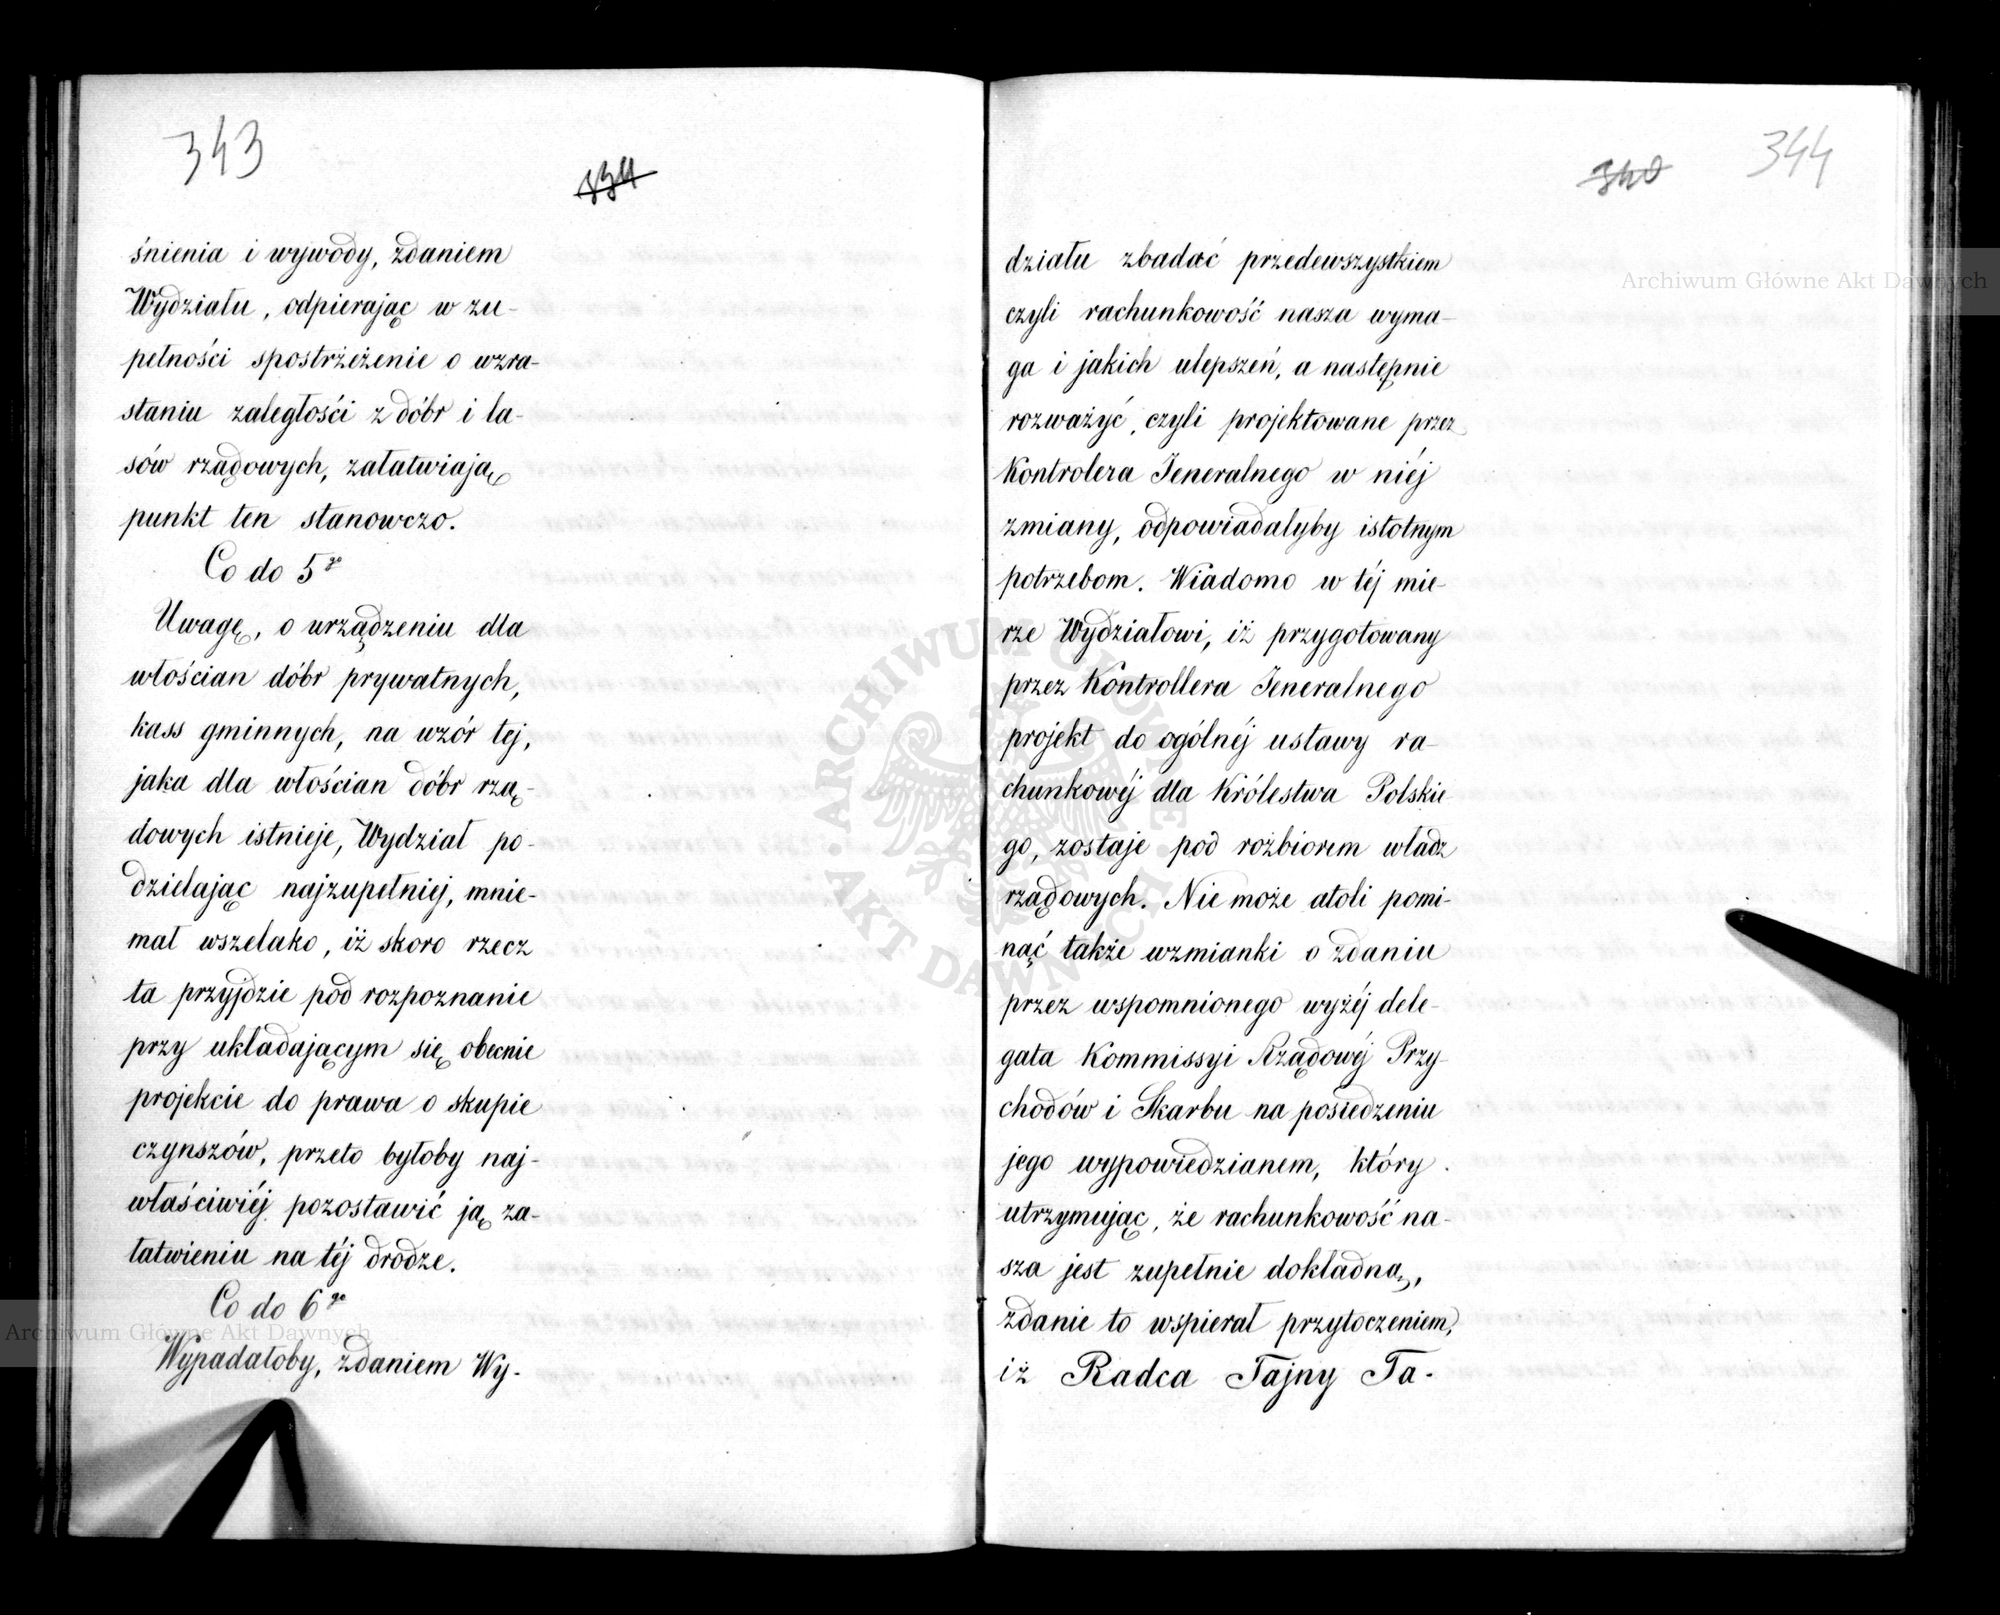 343
334
śnienia i wywody, zdaniem
Wydziału, odpierając w zu-
pełności spostrzeżenie o wzra-
staniu zaległości z dóbr i la-
sów rządowych, załatwiają
punkt ten stanowczo.
Co do 5go
Uwagę, o urządzeniu dla
włościan dóbr prywatnych,
kass gminnych, na wzór tej,
jaka dla włościan dóbr rzą-
dowych istnieje, Wydział po-
dzielając najzupełniej, mnie-
mał wszelako, iż skoro rzecz
ta przyjdzie pod rozpoznanie
przy układającym się obecnie
projekcie do prawa o skupie
czynszów, przeto byłoby naj-
właściwiéj pozostawić ją za-
łatwieniu na téj drodze.
Co do 6go
Wypadałoby, zdaniem Wy-
344
340
działu zbadać przedewszystkiem
czyli rachunkowość nasza wyma-
ga i jakich ulepszeń, a następnie
rozważyć, czyli projektowane przez
Kontrolera Jeneralnego w niéj
zmiany, odpowiadałyby istotnym
potrzebom. Wiadomo w téj mie-
rze Wydziałowi, iż przygotowany
przez Kontrollera Jeneralnego
projekt do ogólnéj ustawy ra-
chunkowéj dla Królestwa Polskie
go, zostaje pod rozbiorem władz
rządowych. Nie może atoli pomi-
nąć także wzmianki o zdaniu
przez wspomnionego wyżéj dele-
gata Kommissyi Rządowéj Przy-
chodów i Skarbu na posiedzeniu
jego wypowiedzianem, który
utrzymując, że rachunkowość na-
sza jest zupełnie dokładną,
zdanie to wspierał przytoczeniem,
iż Radca Tajny Ta-
Archiwum Główne Akt Dawnych
Archiwum Główne Akt Dawnych
ARCHIWUM GŁÓWNE AKT DAWNYCH